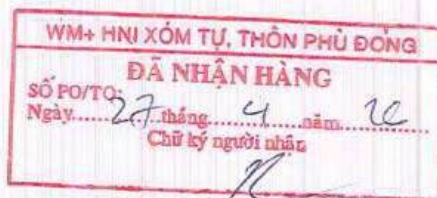 WM+ HNI XÓM TỰ, THÔN PHÙ ĐỔNG
ĐÃ NHẬN HÀNG
SỐ PO/TO:
Ngày......27....tháng.......4.......năm....26.......
Chữ ký người nhận